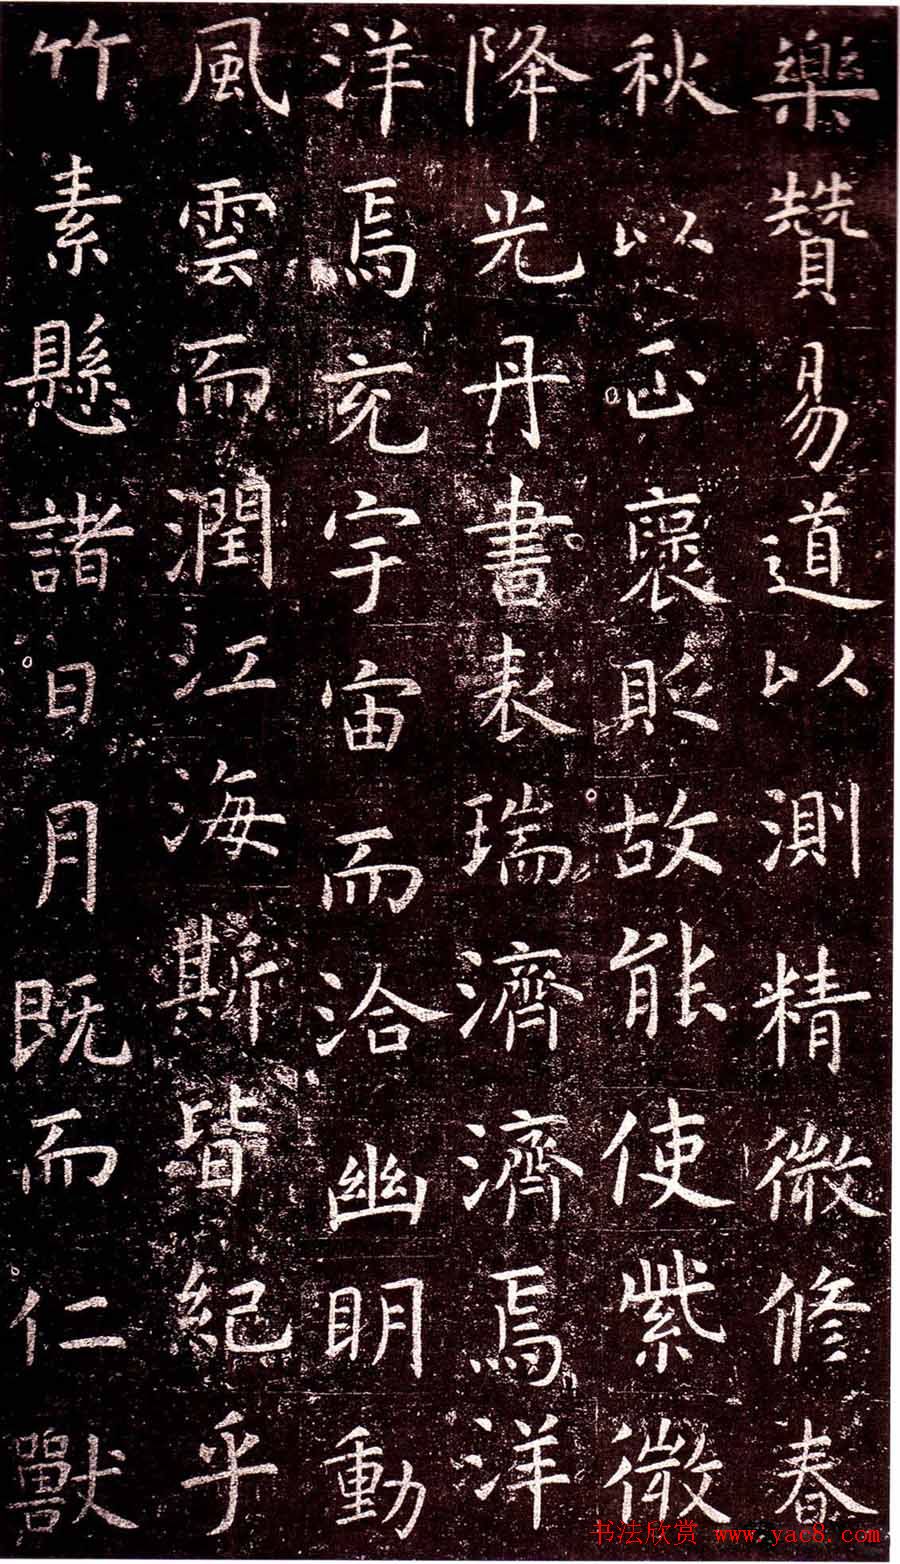 樂贊易道以測精微修春
秋以正褒貶故能使紫微
降光丹書表瑞濟濟焉洋
洋焉充宇宙而洽幽明動
風雲而潤江海斯皆紀乎
竹素懸諸日月既而仁獸
书法欣赏 www.yac8.com